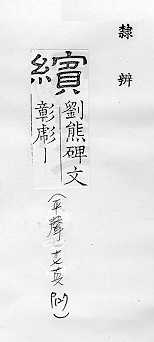 隸辨
繽
劉熊碑文
彰彪丨
(平聲 十七真